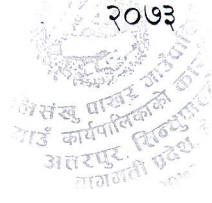 २०७३
लिसंखु पाखर गाउँपा
गाउँ कार्यपालिकाको
अत्तरपुर, सिन्धुपा
बागमती प्रदेश